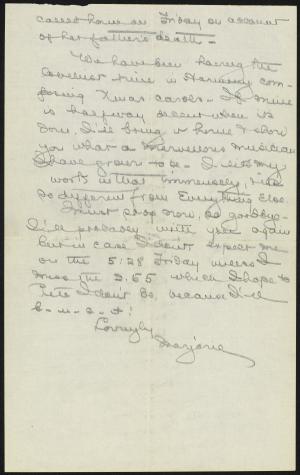 called home on Friday on account
of her father's death –
We have been having the
loveliest time in Harmony com-
posing Xmas carols – If mine
is halfway decent when its
done, I'll bring it home & show
you what a marvelous musician
I have grown to be – I like my
work in that immensely, it's
so different from everything else.
Must stop now, so goodbye –
I'll probably write you again
but in case I don't expect me
on the 5:28 Friday unless I
miss the 2.55 which I hope to
Pete I don't do, because I'll
b-u-s-t!
Lovingly
Marjorie